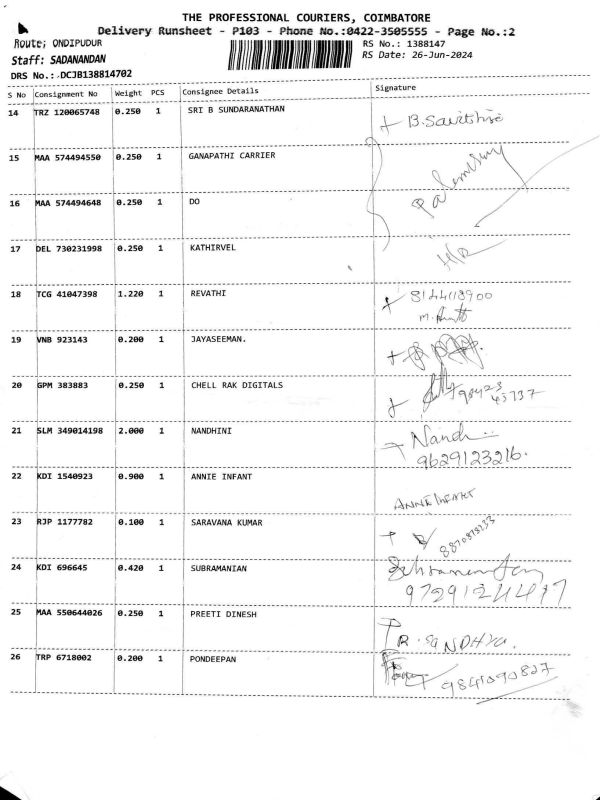 THE PROFESSIONAL COURIERS, COIMBATORE
Delivery Runsheet - P103 - Phone No.:0422-3505555 - Page No.:2
Route; ONDIPUDUR
RS No.: 1388147
Staff: SADANANDAN
RS Date: 26-Jun-2024
DRS No.: DCJB138814702
S No Consignment No Weight PCS Consignee Details Signature
14 TRZ 120065748 0.250 1 SRI B SUNDARANATHAN
15 MAA 574494550 0.250 1 GANAPATHI CARRIER
16 MAA 574494648 0.250 1 DO
17 DEL 730231998 0.250 1 KATHIRVEL
18 TCG 41047398 1.220 1 REVATHI
19 VNB 923143 0.200 1 JAYASEEMAN.
20 GPM 383883 0.250 1 CHELL RAK DIGITALS
21 SLM 349014198 2.000 1 NANDHINI Nandh
9629123216.
22 KDI 1540923 0.900 1 ANNIE INFANT
23 RJP 1177782 0.100 1 SARAVANA KUMAR
24 KDI 696645 0.420 1 SUBRAMANIAN
25 MAA 550644026 0.250 1 PREETI DINESH R. SANDHYA.
26 TRP 6718002 0.200 1 PONDEEPAN 9841090827